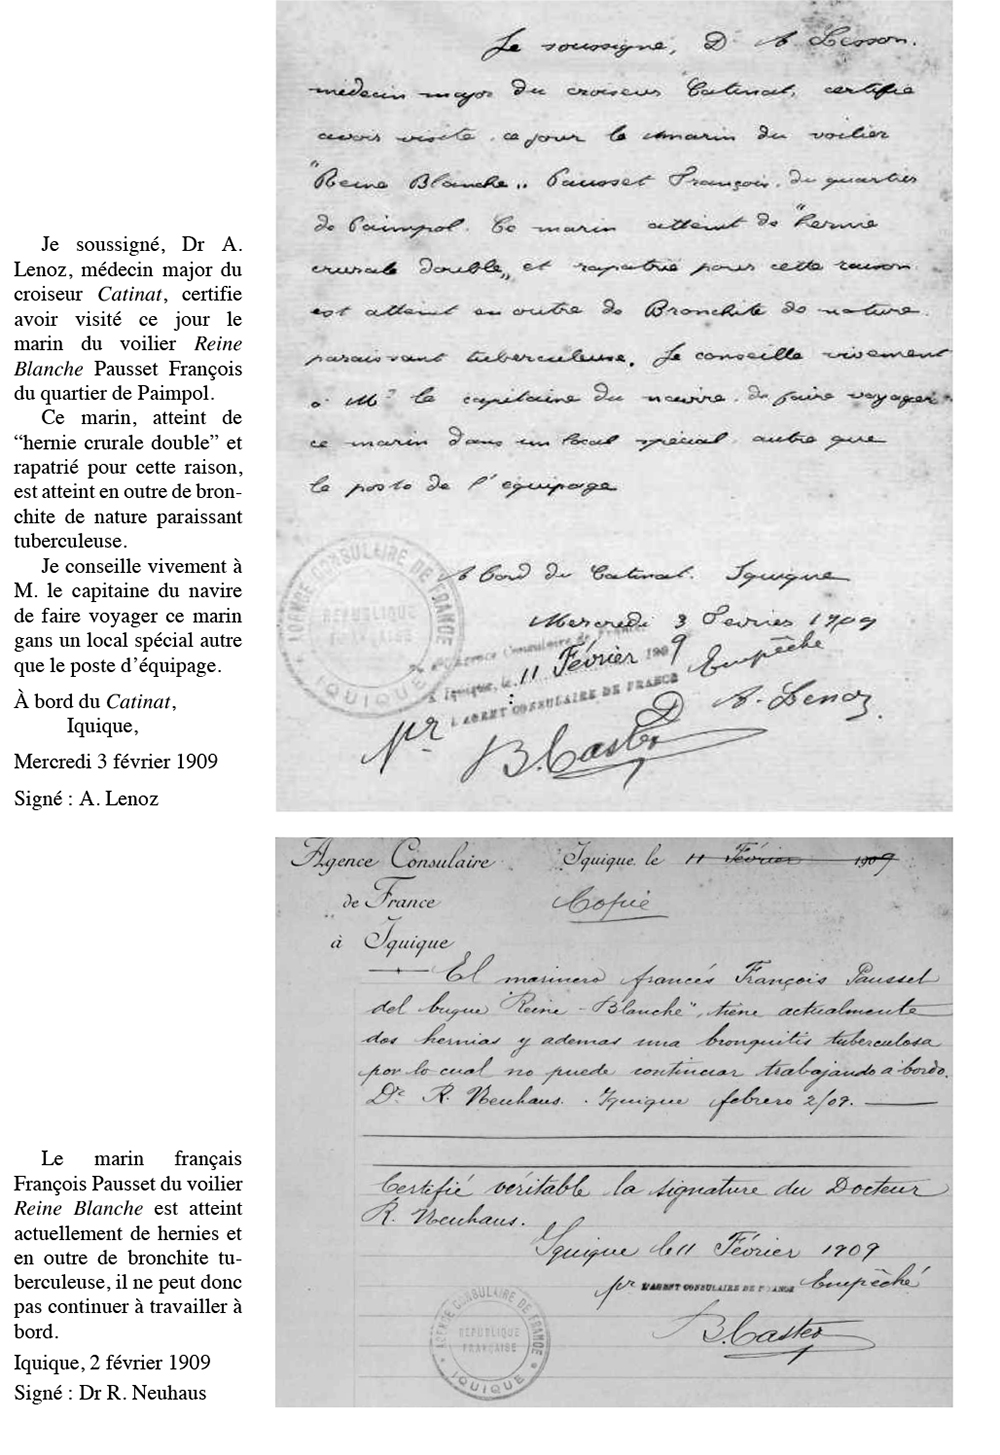 Je soussigné, Dr A.
Lenoz, médecin major du
croiseur Catinat, certifie
avoir visité ce jour le
marin du voilier Reine
Blanche Pausset François
du quartier de Paimpol.
Ce marin, atteint de
“hernie crurale double” et
rapatrié pour cette raison,
est atteint en outre de bron-
chite de nature paraissant
tuberculeuse.
Je conseille vivement à
M. le capitaine du navire
de faire voyager ce marin
gans un local spécial autre
que le poste d’équipage.
À bord du Catinat,
Iquique,
Mercredi 3 février 1909
Signé : A. Lenoz
Je soussigné, Dr A.
médecin major du croiseur Catinat, certifie
avoir visité ce jour le marin du voilier
"Reine Blanche" Pausset François, du quartier
de Paimpol. Ce marin atteint de "hernie
crurale double" et rapatrié pour cette raison
est atteint en outre de Bronchite de nature
paraissant tuberculeuse. Je conseille vivement
à Mr le capitaine du navire, de faire voyager
ce marin dans un local spécial autre que
le poste de l'équipage
A bord du Catinat. Iquique
Mercredi 3 Février 1909
AGENCE CONSULAIRE DE FRANCE
RÉPUBLIQUE
FRANÇAISE
IQUIQUE
Agence Consulaire de France
à Iquique, le 11 Février 1909
L'AGENT CONSULAIRE DE FRANCE
Empêché
Dr A. Lenoz.
pr B. Caster
Agence Consulaire
de France
à Iquique
Iquique, le 11 Février 1909
Copie
El marinero francés François Pausset
del buque "Reine-Blanche", tiene actualmente
dos hernias y ademas una bronquitis tuberculosa
por lo cual no puede continuar trabajando à bordo.
Dr. R. Neuhaus. Iquique febrero 2/09.
Certifié véritable la signature du Docteur
R. Neuhaus.
Iquique le 11 Février 1909
pr L'AGENT CONSULAIRE DE FRANCE Empêché
B. Caster
AGENCE CONSULAIRE DE FRANCE
RÉPUBLIQUE
FRANÇAISE
IQUIQUE
Le marin français
François Pausset du voilier
Reine Blanche est atteint
actuellement de hernies et
en outre de bronchite tu-
berculeuse, il ne peut donc
pas continuer à travailler à
bord.
Iquique, 2 février 1909
Signé : Dr R. Neuhaus